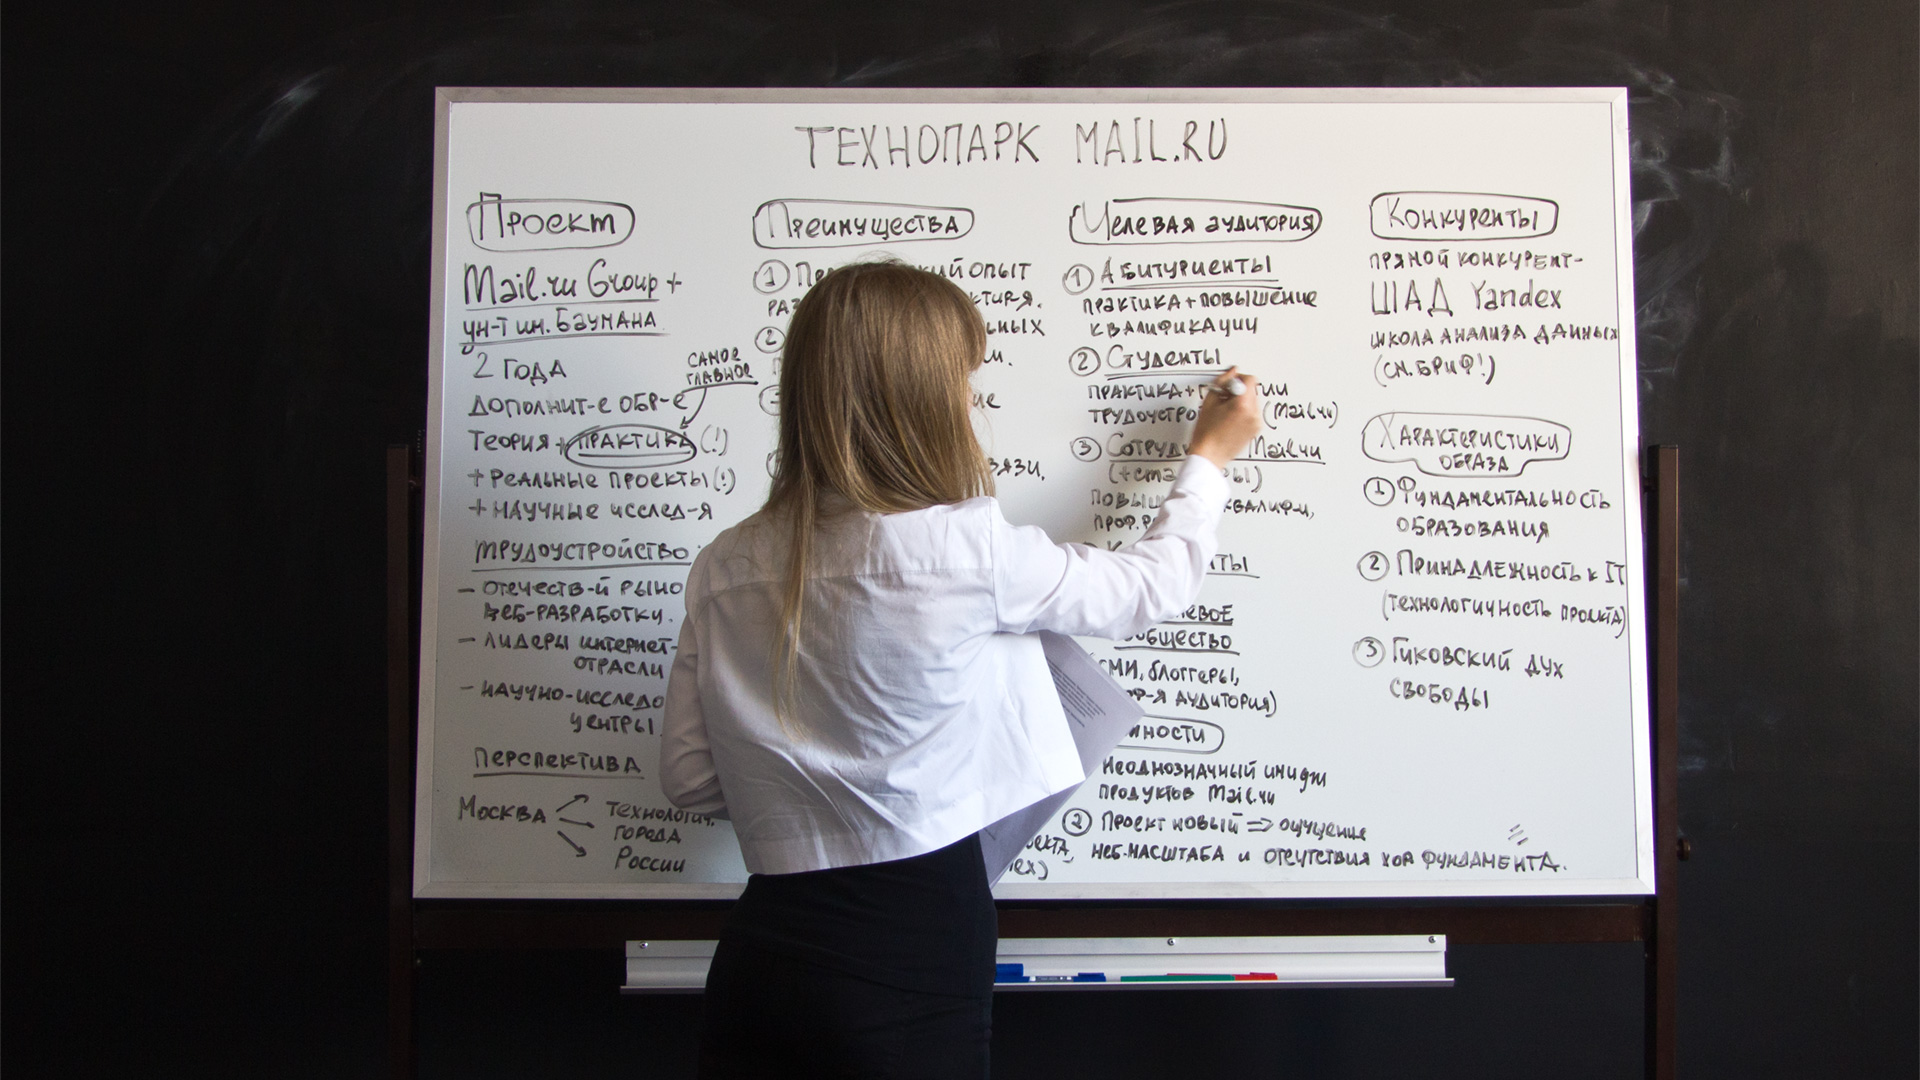 ТЕХНОПАРК MAIL.RU
Проект
Mail.ru Group +
ун-т им. Баумана
2 года
дополнит-е обр-е
самое
главное
Теория + практика (!)
+ Реальные проекты (!)
+ научные исслед-я
Трудоустройство:
- отечеств-й рыно
веб-разработки.
- лидеры интернет-
отрасли
- научно-исследо
центры
Перспектива
Москва
технологич.
города
России
Преимущества
1
й опыт
2
1 Абитуриенты
Целевая аудитория
практика + повышение
квалификации
2 Студенты
практика +
(Mail.ru)
3 Mail.ru
квалиф-и,
общество
СМИ, блоггеры,
аудитория)
неоднозначный имидж
продуктов Mail.ru
2 Проект новый => ощущение
неб. масштаба и отсутствия хор фундамента.
Конкуренты
прямой конкурент-
ШАД Yandex
школа анализа данных
(см. бриф!)
Характеристики
образа
1 Фундаментальность
образования
2 Принадлежность к IT
(технологичность проекта)
3 Гиковский дух
свободы